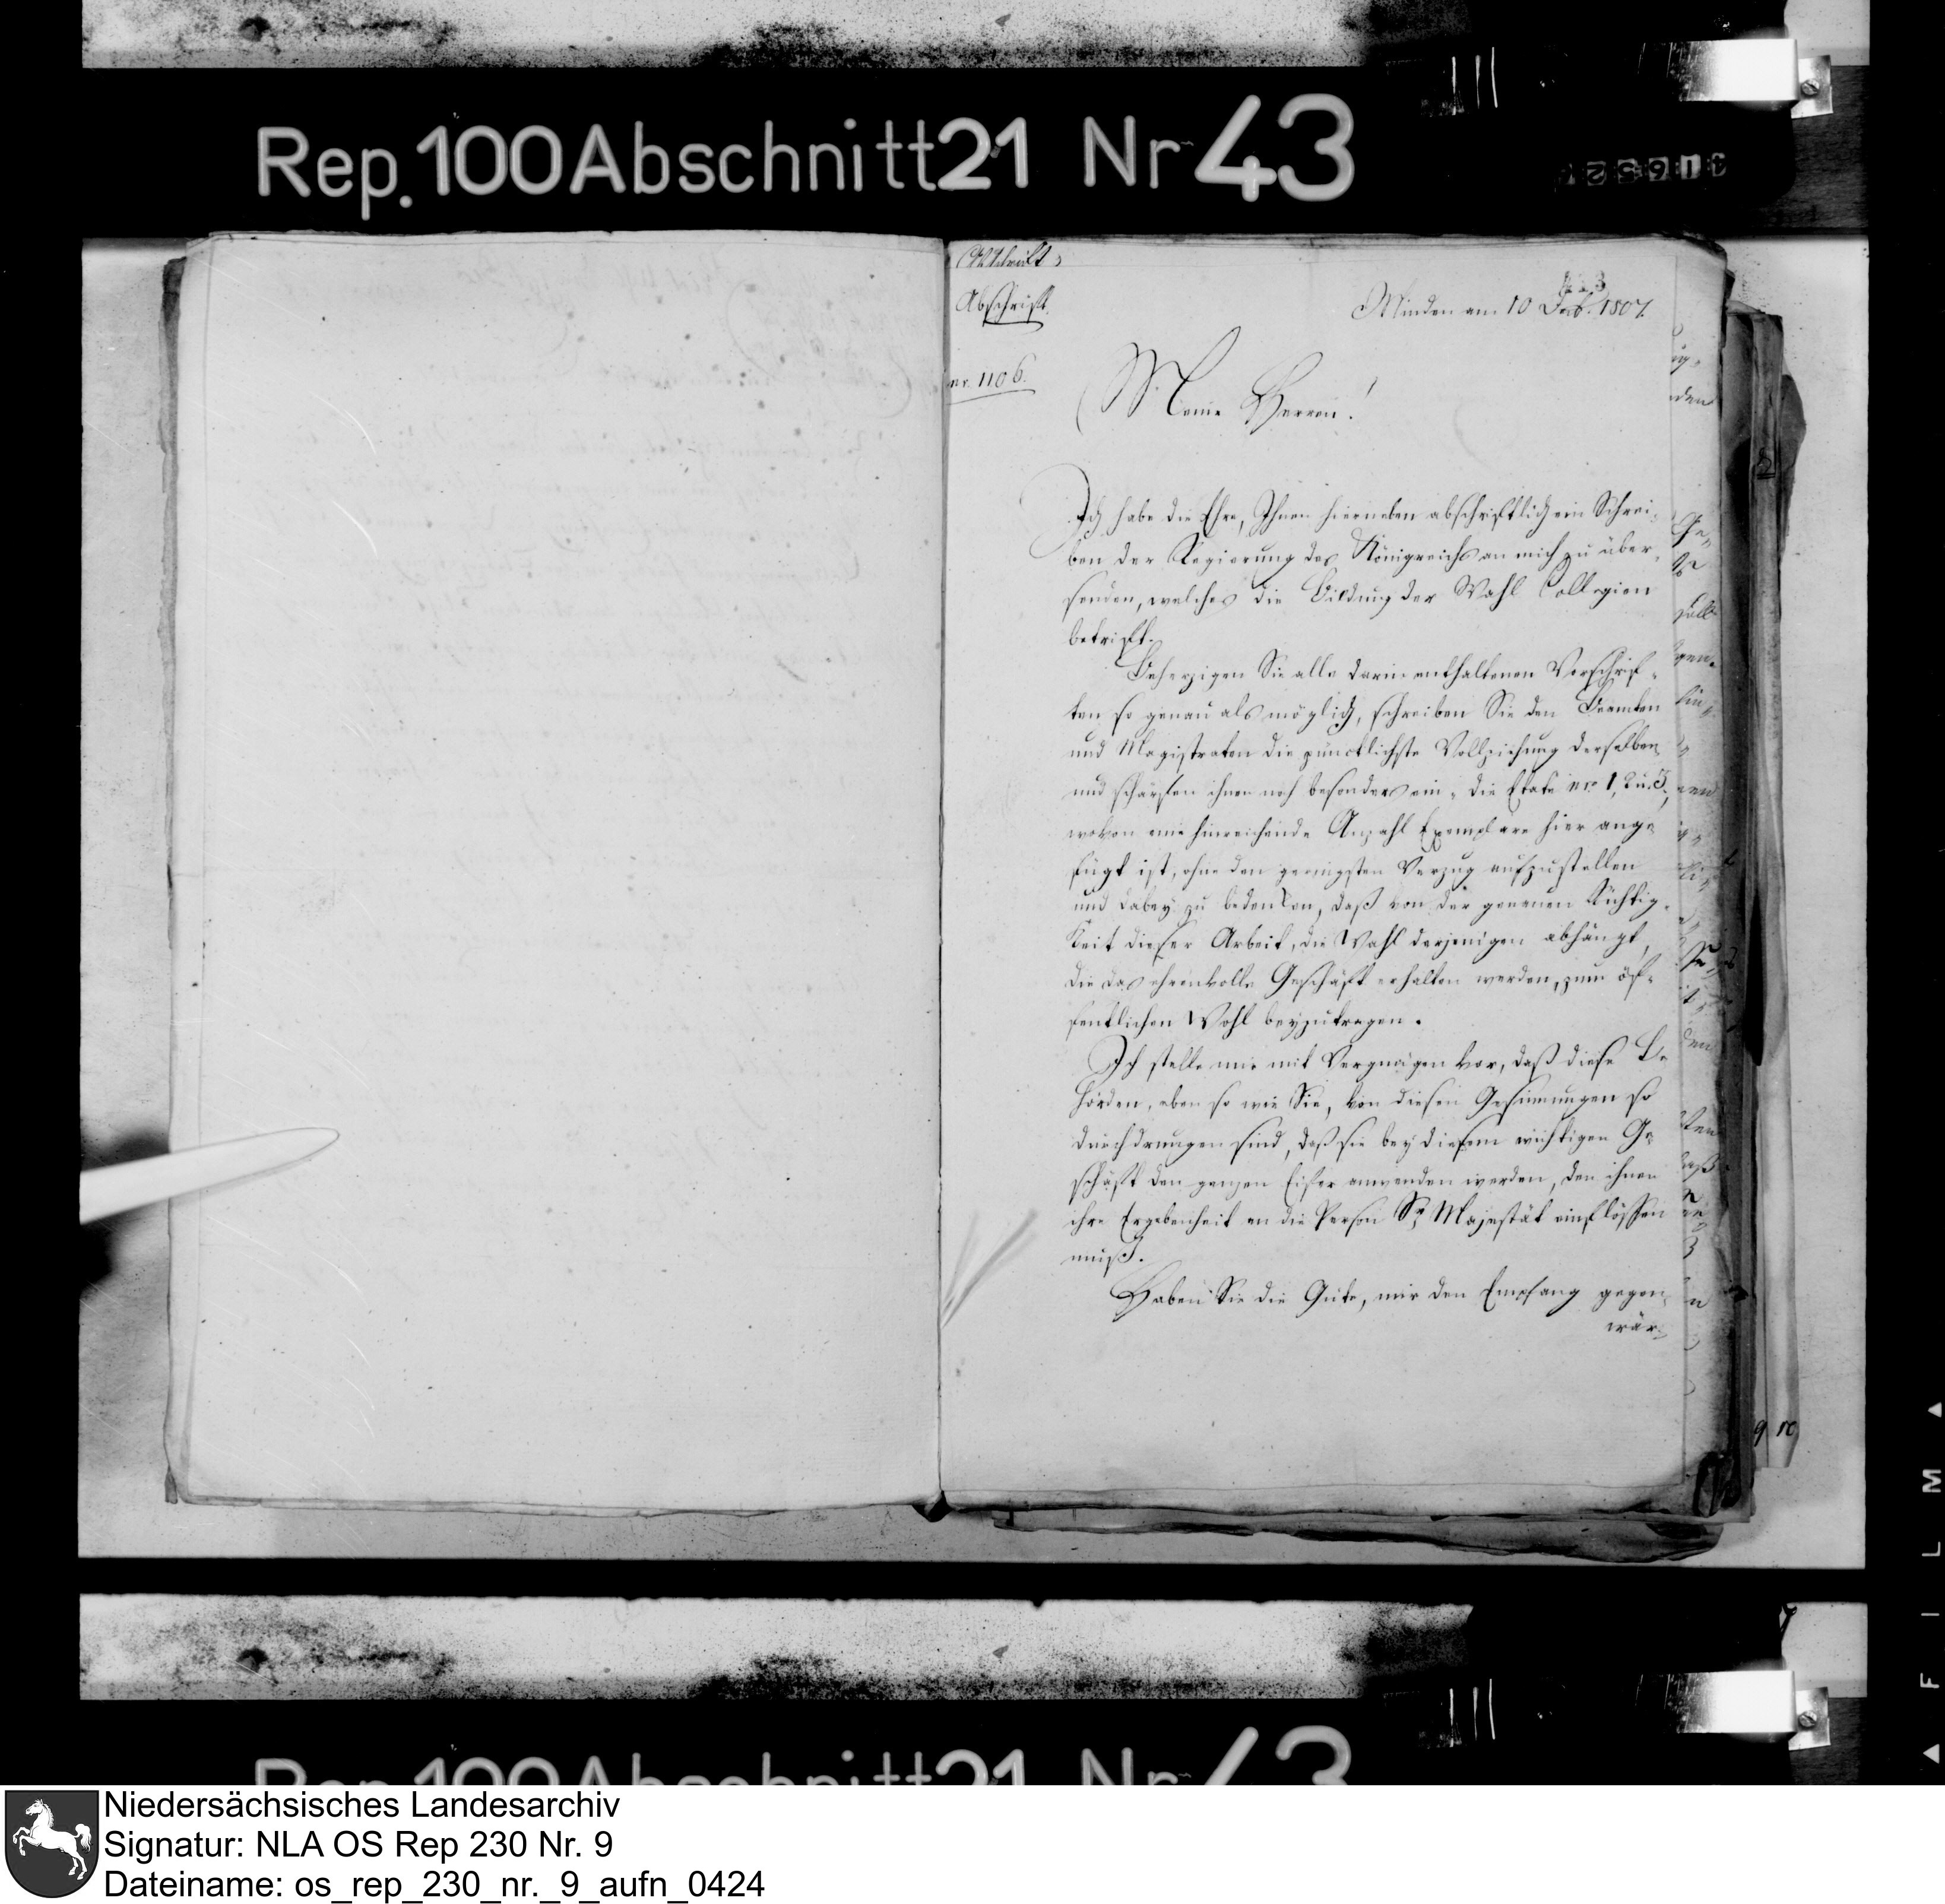 Rep. 100 Abschnitt 21 Nr 43
Abschrift.
Minden am 10 Decb. 1807.
nr. 1106.
Meine Herren!
Ich habe die Ehre, Ihnen hierneben abschriftlich ein Schrei-
ben der Regierung des Königreichs an mich zu über-
senden, welches die Bildung der Wahl Collegien
betrift.
Beherzigen Sie alle darin enthaltenen Vorschrif-
ten so genau als möglich, schreiben Sie den Beamten
und Magistraten die pünctlichste Vollziehung derselben
und schärfen ihnen noch besonders ein, die Etats nro 1, 2 u. 3,
wovon eine hinreichende Anzahl Exemplare hier ange-
fügt ist, ohne den geringsten Verzug aufzustellen
und dabey zu bedenken, daß von der genauen Richtig-
keit dieser Arbeit, die Wahl derjenigen abhängt,
die das ehrenvolle Geschäft erhalten werden, zum öf-
fentlichen Wohl beyzutragen.
Ich stelle mir mit Vergnügen vor, daß diese Be-
hörden, eben so wie Sie, von diesen Gesinnungen so
durchdrungen sind, daß sie bey diesem wichtigen Ge-
schäft den ganzen Eifer anwenden werden, den ihnen
ihre Ergebenheit an die Person Sr Majestät einflössen
muß.
Haben Sie die Güte, mir den Empfang gegen-
wär-
FILM
Niedersächsisches Landesarchiv
Signatur: NLA OS Rep 230 Nr. 9
Dateiname: os_rep_230_nr._9_aufn_0424